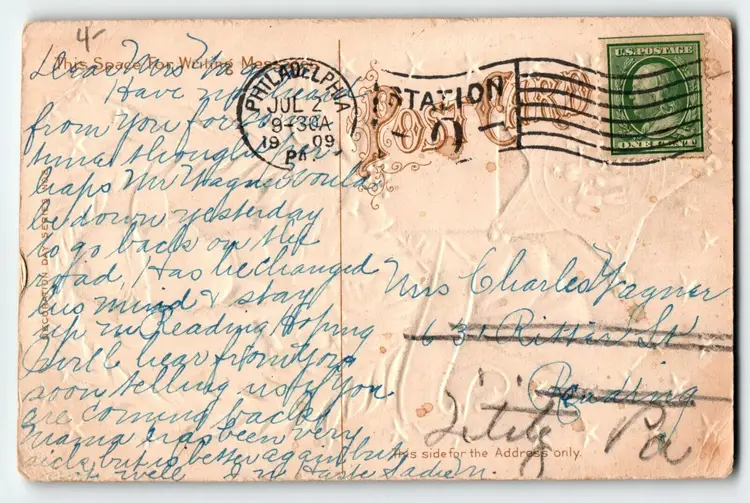 4-
This Space For Writing Message
Dear Mrs Wagner
Have not heard
from you for some
time thought per
haps Mr Wagner would
be down yesterday
to go back on the
road, Has he changed
his mind & stay
up in Reading Hoping
I will hear from you
soon telling us if you
are coming back
Mama has been very
sick but is better again but
not well In haste Sadie N.
DECORATION DAY SERIES NO
PHILADELPHIA
JUL 2
9-30A
1909
PA
STATION
POST CARD
U.S. POSTAGE
ONE CENT
Mrs Charles Wagner
631 Ritter St
Reading
Lititz Pa
This side for the Address only.